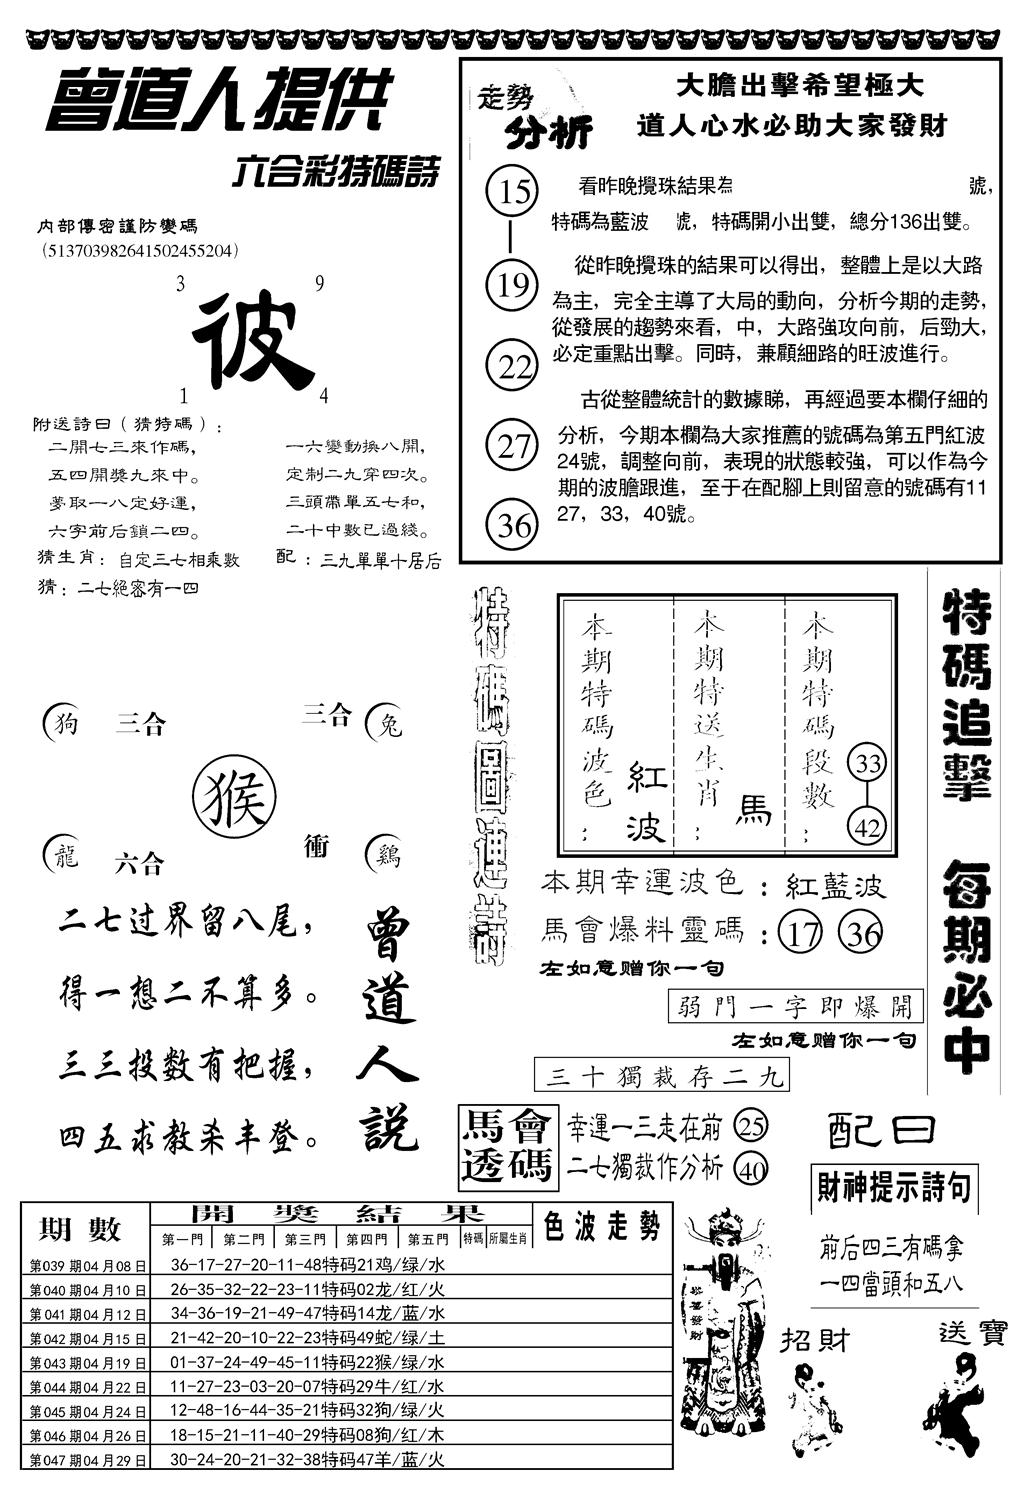 曾道人提供
六合彩特碼詩
内部傳密謹防變碼
（513703982641502455204）
3 9
彼
1 4
附送詩曰（猜特碼）：
二開七三來作碼， 一六變動換八開，
五四開獎九來中。 定制二九穿四次。
夢取一八定好運， 三頭帶單五七和，
六字前后鎖二四。 二十中數已過綫。
猜生肖：自定三七相乘數 配：三九單單十居后
猜：二七絕密有一四
走勢
分析
大膽出擊希望極大
道人心水必助大家發財
15
19
22
27
36
看昨晚攪珠結果為 號，
特碼為藍波 號，特碼開小出雙，總分136出雙。
從昨晚攪珠的結果可以得出，整體上是以大路
為主，完全主導了大局的動向，分析今期的走勢，
從發展的趨勢來看，中，大路強攻向前，后勁大，
必定重點出擊。同時，兼顧細路的旺波進行。
古從整體統計的數據睇，再經過要本欄仔細的
分析，今期本欄為大家推薦的號碼為第五門紅波
24號，調整向前，表現的狀態較強，可以作為今
期的波膽跟進，至于在配腳上則留意的號碼有11
27，33，40號。
狗 三合 三合 兔
猴
龍 六合 衝 鷄
二七过界留八尾，
得一想二不算多。
三三投数有把握，
四五求教杀丰登。
曾道人説
特碼圖連詩
本期特碼波色：紅波
本期特送生肖：馬
本期特碼段數：33 42
本期幸運波色：紅藍波
馬會爆料靈碼：17 36
左如意赠你一句
弱門一字即爆開
左如意赠你一句
三十獨裁存二九
特碼追擊 每期必中
馬會透碼
幸運一三走在前 25
二七獨裁作分析 40
配曰
財神提示詩句
前后四三有碼拿
一四當頭和五八
招財
送寶
恭喜發財
期數 開獎結果 色波走勢
第一門 第二門 第三門 第四門 第五門 特碼 所屬生肖
第039期04月08日 36-17-27-20-11-48特码21鸡/绿/水
第040期04月10日 26-35-32-22-23-11特码02龙/红/火
第041期04月12日 34-36-19-21-49-47特码14龙/蓝/水
第042期04月15日 21-42-20-10-22-23特码49蛇/绿/土
第043期04月19日 01-37-24-49-45-11特码22猴/绿/水
第044期04月22日 11-27-23-03-20-07特码29牛/红/水
第045期04月24日 12-48-16-44-35-21特码32狗/绿/火
第046期04月26日 18-15-21-11-40-29特码08狗/红/木
第047期04月29日 30-24-20-21-32-38特码47羊/蓝/火